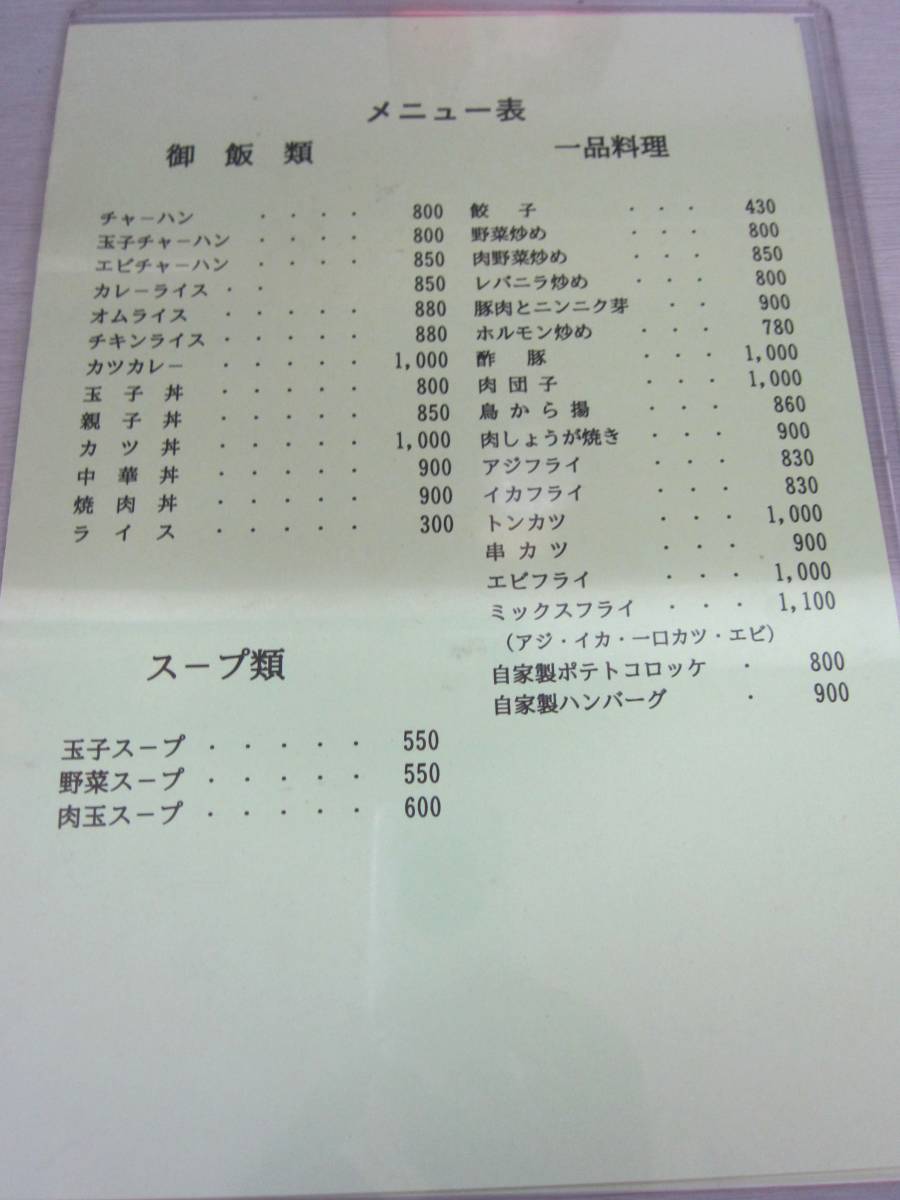 メニュー表
御飯類
チャーハン ・・・・ 800
玉子チャーハン ・・・・ 800
エビチャーハン ・・・・ 850
カレーライス ・・ 850
オムライス ・・・・・ 880
チキンライス ・・・・・ 880
カツカレー ・・・・・ 1,000
玉子丼 ・・・・・ 800
親子丼 ・・・・・ 850
カツ丼 ・・・・・ 1,000
中華丼 ・・・・・ 900
焼肉丼 ・・・・・ 900
ライス ・・・・・ 300
スープ類
玉子スープ ・・・・・ 550
野菜スープ ・・・・・ 550
肉玉スープ ・・・・・ 600
一品料理
餃子 ・・・ 430
野菜炒め ・・・ 800
肉野菜炒め ・・・ 850
レバニラ炒め ・・・ 800
豚肉とニンニク芽 ・・ 900
ホルモン炒め ・・・ 780
酢豚 ・・・ 1,000
肉団子 ・・・ 1,000
鳥から揚 ・・・ 860
肉しょうが焼き ・・・ 900
アジフライ ・・・ 830
イカフライ ・・・ 830
トンカツ ・・・ 1,000
串カツ ・・・ 900
エビフライ ・・・ 1,000
ミックスフライ ・・・ 1,100
（アジ・イカ・一口カツ・エビ）
自家製ポテトコロッケ ・ 800
自家製ハンバーグ ・ 900